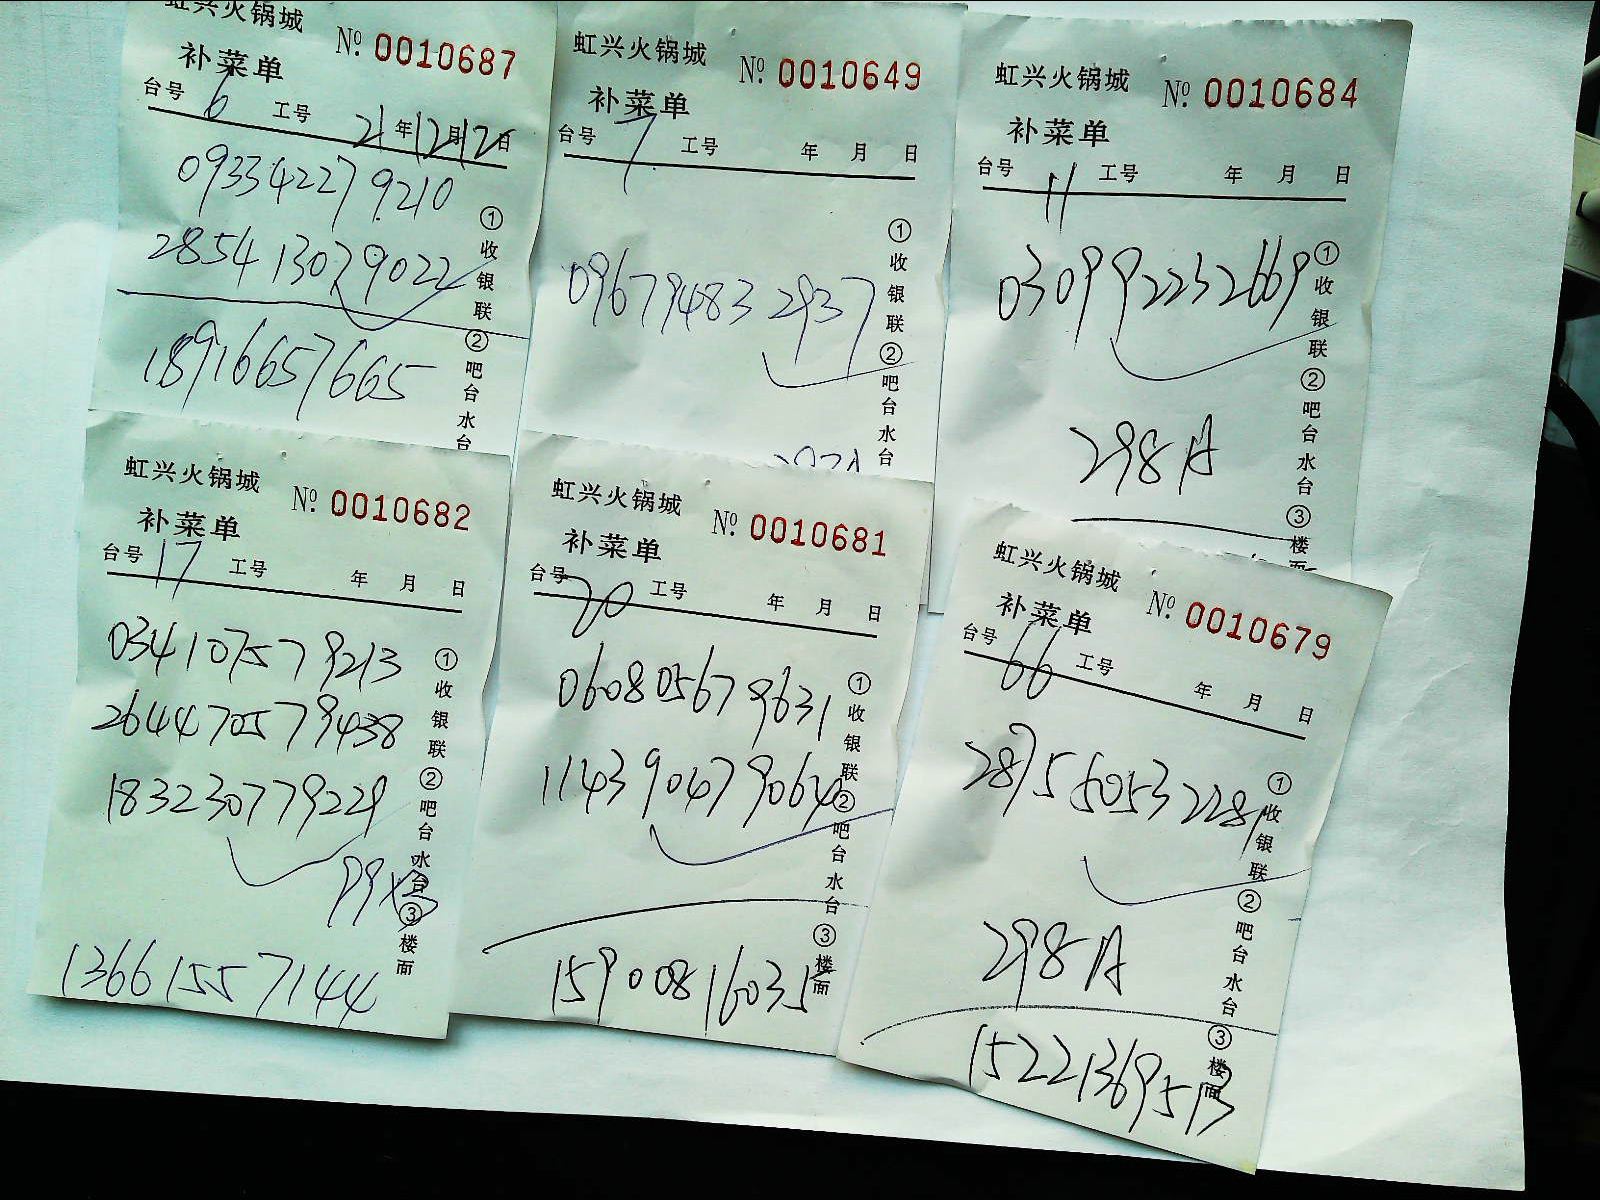 虹兴火锅城
№ 0010687
补菜单
台号 6 工号 21年12月12日
093342279210
285413079022
18916657665
①收银联②吧台水台
虹兴火锅城
№ 0010649
补菜单
台号 7 工号 年 月 日
096794832937
①收银联②吧台水台
虹兴火锅城
№ 0010684
补菜单
台号 11 工号 年 月 日
030992232669
298A
①收银联②吧台水台③楼面
虹兴火锅城
№ 0010682
补菜单
台号 17 工号 年 月 日
034107579213
264470579438
183230779229
99x3
13661557144
①收银联②吧台水台③楼面
虹兴火锅城
№ 0010681
补菜单
台号 20 工号 年 月 日
060805679631
114390479064
15900816035
①收银联②吧台水台③楼面
虹兴火锅城
№ 0010679
补菜单
台号 66 工号 年 月 日
287560532281
298A
15221369513
①收银联②吧台水台③楼面